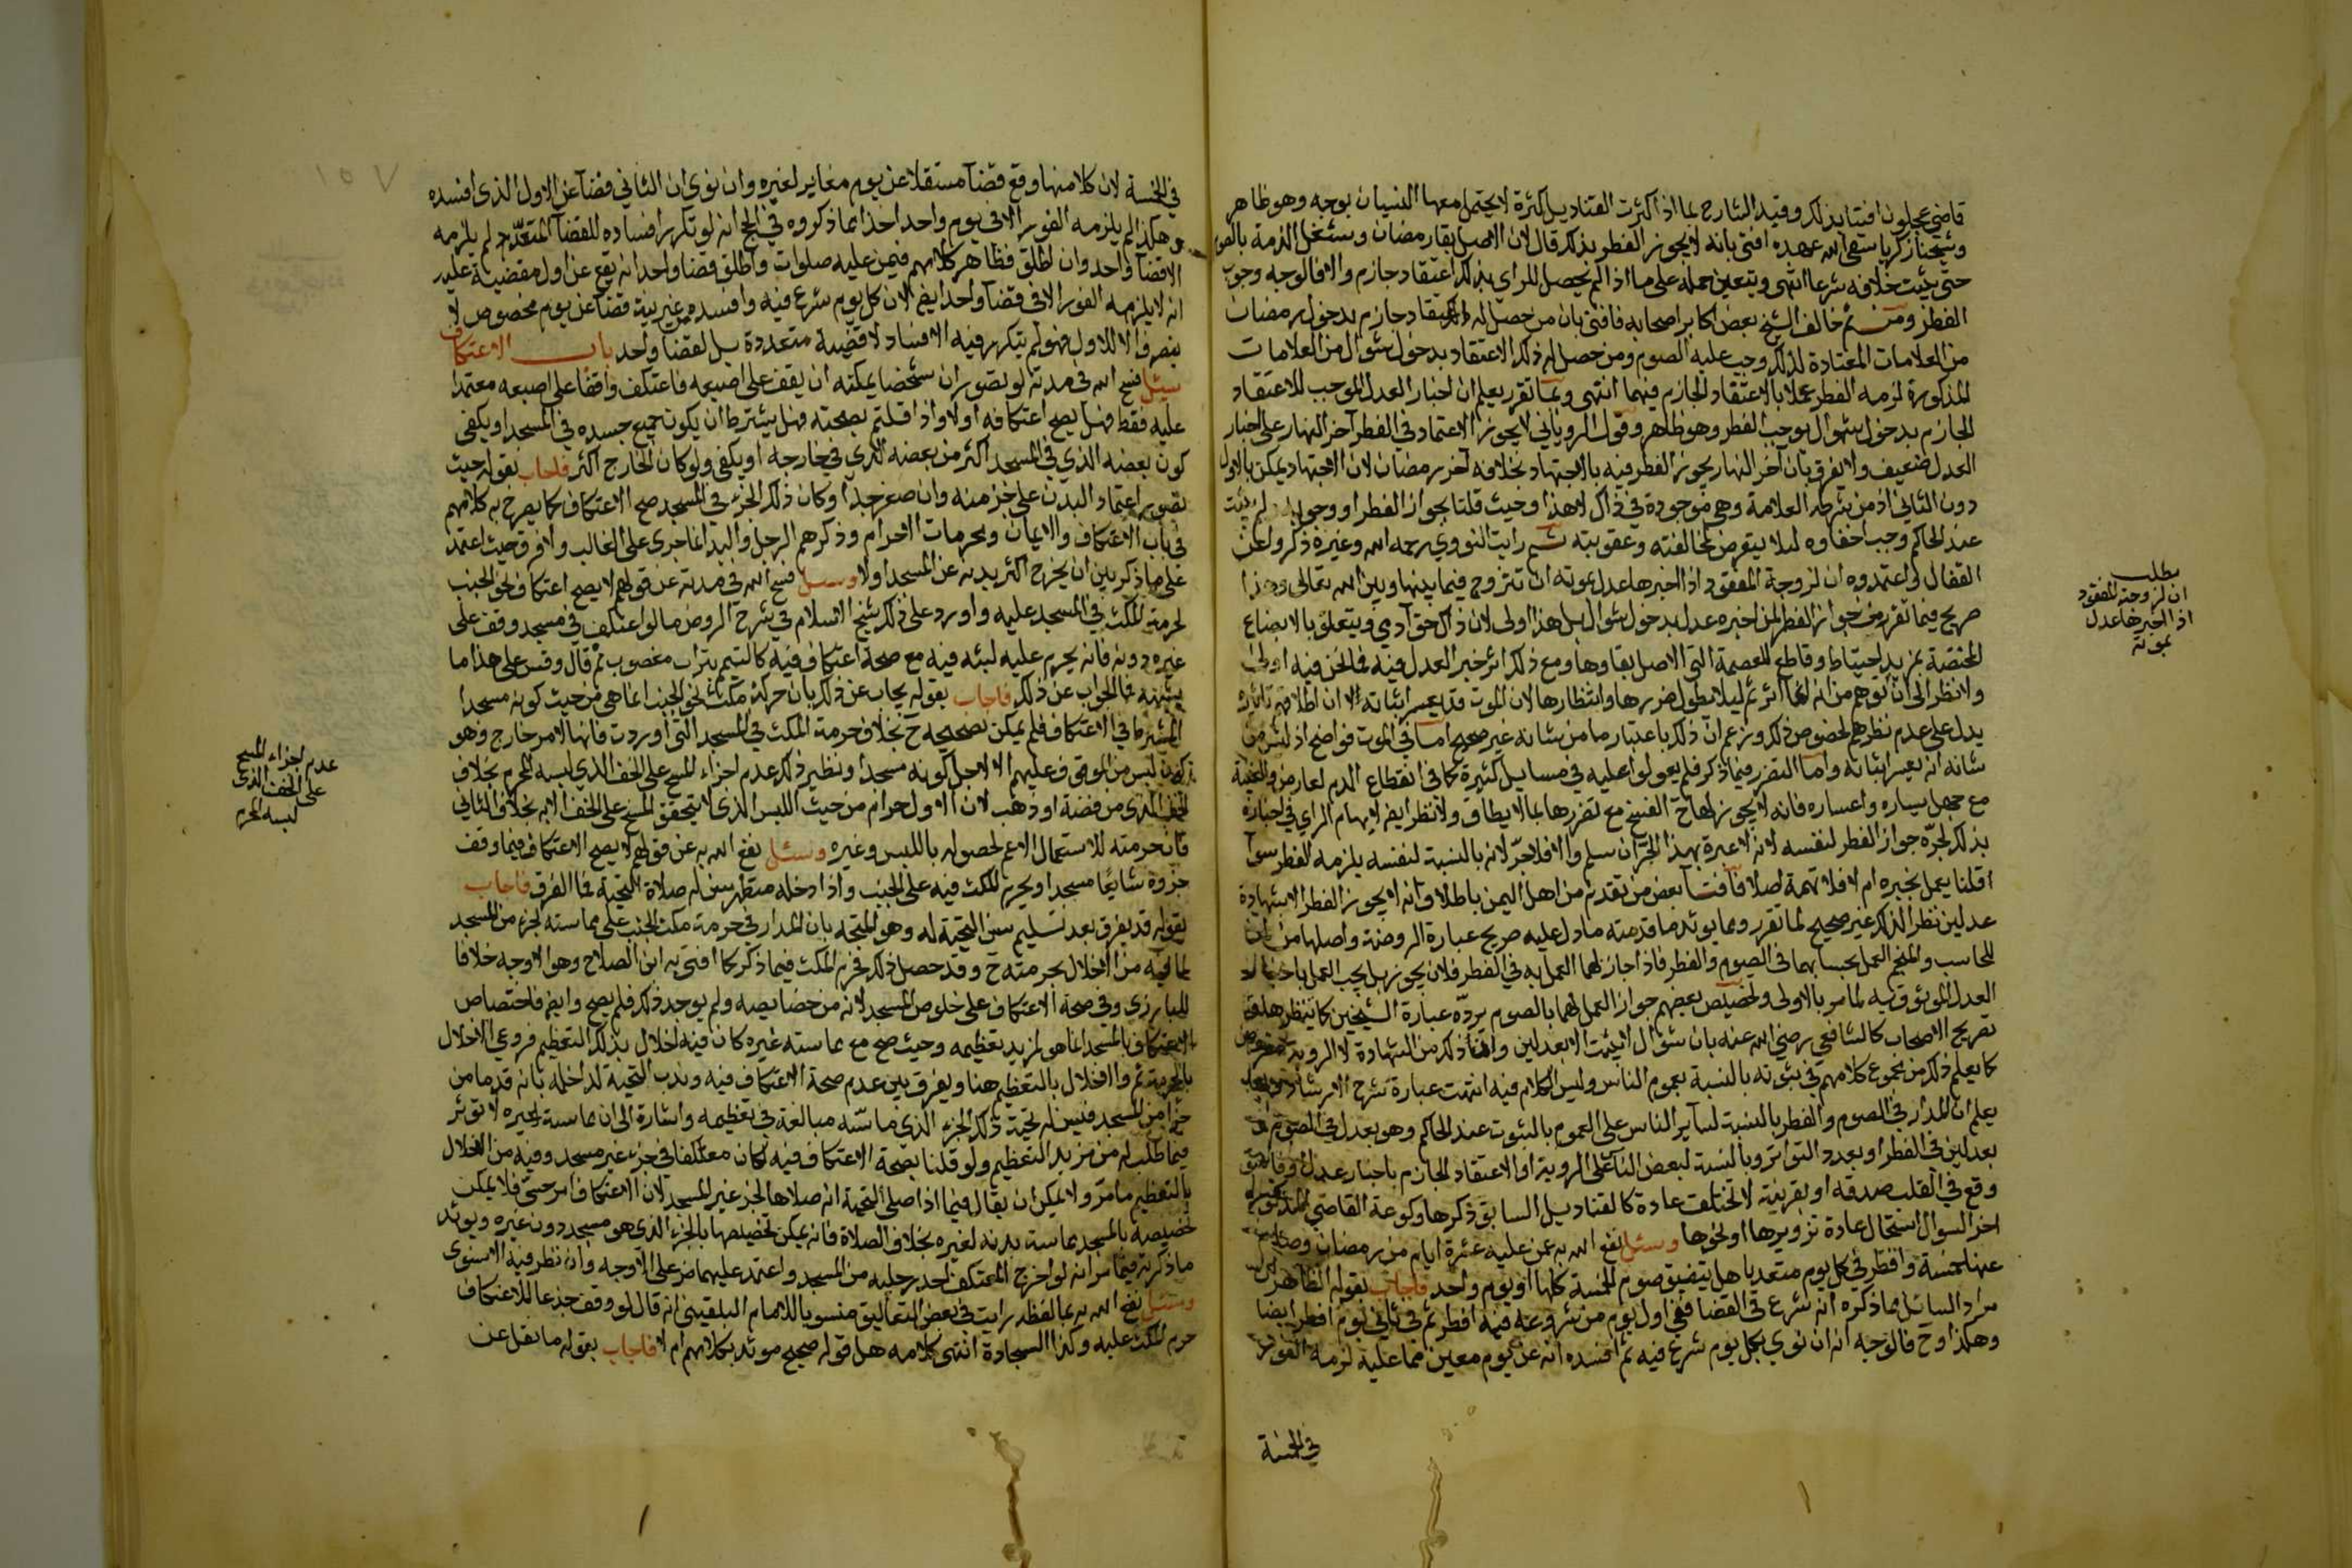 قاضي عجلون افتا بذلك وقيد الشارح بما اذا كثرت القناديل كثرة لا يحتمل معها النسيان بوجه وهو ظاهر
وشيخنا زكريا سقى الله عهده افتى بانه لا يجوز الفطر بذلك قال لان الاصل بقا رمضان وشغل الذمة بالصوم
حتى يثبت خلافه شرعا انتهى ويتعين حمله على ما اذا لم يحصل للراي بذلك اعتقاد جازم والا فالوجه وجوب
الفطر ومن ثم خالف الشيخ بعض اكابر اصحابه فافتى بان من حصل له اعتقاد جازم بدخول رمضان
من العلامات المعتادة لذلك وجب عليه الصوم ومن حصل له ذلك الاعتقاد بدخول شوال من العلامات
المذكورة لزمه الفطر عملا بالاعتقاد الجازم فيهما انتهى وبما تقرر يعلم ان اخبار العدل الموجب للاعتقاد
الجازم بدخول شوال يوجب الفطر وهو ظاهر وقول الروياني لا يجوز الاعتماد في الفطر آخر النهار على اخبار
العدل ضعيف ولا يفرق بان آخر النهار يجوز الفطر فيه بالاجتهاد بخلافه آخر رمضان لان الاجتهاد يمكن بالاول
دون الثاني اذ من شرطه العلامة وهي موجودة في ذاك لا هذا وحيث قلنا بجواز الفطر او وجوبه لم يثبت
عند الحاكم وجب اخفاوه لئلا يتعرض لمخالفته وعقوبته ثم رايت النووي رحمه الله وغيره ذكروا عن
القفال واعتمدوه ان لزوجة المفقود اذا اخبرها عدل بموته ان تتزوج فيما بينها وبين الله تعالى وهذا
صريح فيما تقرر من جواز الفطر لمن اخبره عدل بدخول شوال بل هذا اولى لان ذاك حق آدمي ويتعلق بالابضاع
المختصة بمزيد احتياط وقاطع للعصمة التي الاصل بقاوها ومع ذلك اثر خبر العدل فيه فما نحن فيه اولى
ولا نظر الى ان توهم من انه انما اثر ثم ليلا يطول ضررها وانتظارها لان الموت قد يعسر اثباته الا ان اطلاقه
يدل على عدم نظرهم لخصوص ذلك وزعم ان ذلك باعتبار ما من شانه غير صحيح اما في الموت فواضح اذ ليس من
شانه انه يعسر اثباته واما التضرر فيما ذكر فلم يعولوا عليه في مسايل كثيرة كما في انقطاع الدم لعارض والغيبة
مع جهل يساره واعساره فانه لا يجوز لها ح الفسخ مع تضررها بما لا يطاق ولا نظر ايض لايهام الراي في اخباره
بذلك لجره جواز الفطر لنفسه لانه لا عبرة بهذا الجر ان سلم والا فلا جر لانه بالنسبة لنفسه يلزمه الفطر سوا
اقلنا يعمل بخبره ام لا فلا تهمة اصلا فافتا بعض من تقدم من اهل اليمن باطلاق انه لا يجوز الفطر الا بشهادة
عدلين نظر الذلك غير صحيح لما تقرر ومما يوئد ما قدمته ما دل عليه صريح عبارة الروضة واصلها من ان
للحاسب والمنجم العمل بحسابهما في الصوم والفطر فاذا جاز لهما العمل به في الفطر فلان يجوز بل يجب العمل باخبار
العدل الموثوق به لما مر بالاولى وتخصيص بعضهم جواز العمل لهما بالصوم يرده عبارة الشيخين
تصريح الاصحاب كالشافعي رضي الله عنه بان شوال لا يثبت الا بعدلين وانما ذكر من الشهادة لا الروية
كما يعلم ذلك من مجموع كلامهم في ثبوته بالنسبة بعموم الناس وليس الكلام فيه انتهت عبارة شرح الارشاد
يعلم ان المدار في الصوم والفطر بالنسبة لساير الناس على العموم بالثبوت عند الحاكم وهو بعدل في الصوم
بعدلين في الفطر او بعدد التواتر وبالنسبة لبعض الناس على الروية او الاعتقاد الجازم باخبار عدل
وقع في القلب صدقه او بقرينة لا تختلف عادة كالقناديل السابق ذكرها وكوعة القاضي
اخر السوال استحال عادة تزويرها او نحوها وسئل نفع الله به عمن عليه عشرة ايام من رمضان وصام
عنها خمسة وافطر في كل يوم متعديا هل يتضيق صوم الخمسة كلها او يوم واحد فاجاب بقوله الظاهر
مراد السائل بما ذكره انه شرع في القضا ففي اول يوم من شروعه فيه افطر ثم في ثاني يوم افطر ايضا
وهكذا وح فالوجه انه ان نوى بكل يوم شرع فيه ثم افسده انه عن يوم معين مما عليه لزمه الفور
في الخمسة
مطلب
ان لزوجة المفقود
اذا اخبرها عدل
بموته
١٥٧
في الخمسة لان كلا منها وقع قضآ مستقلا عن يوم مغاير لغيره وان نوى ان الثاني قضآ عن الاول الذي افسده
وهكذا لم يلزمه الفور الا في يوم واحد اخذا مما ذكروه في الحج انه لو تكرر افساده للقضآ المتعدد لم يلزمه
الا قضآ واحد وان اطلق فظاهر كلامهم فيمن عليه صلوات واطلق قضا واحد انه يقع عن اول مقضية عليه
انه لا يلزمه الفور الا في قضآ واحد ايض لان كل يوم شرع فيه وافسده من غير نية قضآ عن يوم مخصوص لا
ينصرف الا للاول فهو لم يتكرر فيه الافساد لاقضية متعددة بل لقضا واحد باب الاعتكاف
سئل فسح الله في مدته لو تصور ان شخصا يمكنه ان يقف على اصبعه فاعتكف واقفا على اصبعه معتمدا
عليه فقط فهل يصح اعتكافه او لا واذا قلتم بصحته فهل يشترط ان يكون جميع جسده في المسجد او يكفي
كون بعضه الذي في المسجد اكثر من بعضه الذي في خارجه او يكفي ولو كان الخارج اكثر فاجاب بقوله حيث
تصور اعتماد البدن على جزء منه وان صغر جدا وكان ذلك الجزء في المسجد صح الاعتكاف كما يصرح به كلامهم
في باب الاعتكاف والايمان ومحرمات الاحرام وذكرهم الرجل واليد انما جرى على الغالب ولا فرق حيث اعتمد
على ما ذكر بين ان يخرج اكثر بدنه عن المسجد او لا وسئل فسح الله في مدته عن قولهم لا يصح اعتكاف نحو الجنب
لحرمة المكث في المسجد عليه واورد على ذلك شيخ الاسلام في شرح الروض ما لو اعتكف في مسجد وقف على
غيره دونه فانه يحرم عليه لبثه فيه مع صحة اعتكاف فيه كالتيمم بتراب مغصوب ثم قال وقس على هذا ما
يشبهه فما الجواب عن ذلك فاجاب بقوله يجاب عن ذلك بان حرمة مكث نحو الجنب انما هي من حيث كونه مسجدا
المشترط في الاعتكاف فلم يمكن تصحيحه ح بخلاف حرمة المكث في المسجد التي اوردت فانها لامر خارج وهو
كونه ليس من الموقوف عليهم لا لاجل كونه مسجدا ونظير ذلك عدم اجزاء المسح على الخف الذي لبسه المحرم بخلاف
الخف الذي من فضة او ذهب لان الاول حرام من حيث اللبس الذي لا يتحقق المسح على الخف الا به بخلاف الثاني
فان حرمته للاستعمال الاعم لحصوله باللبس وغيره وسئل نفع الله به عن قولهم لا يصح الاعتكاف فيما وقف
جزوه شايعا مسجدا ويحرم المكث فيه على الجنب واذا دخله متطهر سن له صلاة التحية فما الفرق فاجاب
بقوله قد يفرق بعد تسليم سن التحية له وهو المتجه بان المدار في حرمة مكث الجنب على مماسته لجزء من المسجد
لما فيه من الاخلال بحرمته ح وقد حصل ذلك فحرم المكث فيما ذكر كما افتى به ابن الصلاح وهو الاوجه خلافا
للبارزي وفي صحة الاعتكاف على خلوص المسجد لانه من خصايصه ولم يوجد ذلك فلم يصح وايض فاختصاص
الاعتكاف بالمسجد انما هو لمزيد تعظيمه وحيث صح مع مماسته غيره كان فيه اخلال بذلك التعظيم فروعي الاخلال
بالحرمة ثم والاخلال بالتعظيم هنا ويفرق بين عدم صحة الاعتكاف فيه وندب التحية لداخله بانه قد ماس
جزأ من المسجد فيسن له تحية ذلك الجزء الذي ماسه مبالغة في تعظيمه واشارة الى ان مماسته لغيره لا تؤثر
فيما طلب له من مزيد التعظيم ولو قلنا بصحة الاعتكاف فيه لكان معتكفا في جزء غير مسجد وفيه من الاخلال
بالتعظيم ما مر ولا يمكن ان يقال فيما اذا صلى التحية انه صلاها لجزء غير المسجد لان الاعتكاف امر حسي فلا يمكن
تخصيصه بالمسجد مماسة بدنه لغيره بخلاف الصلاة فانه يمكن تخصيصها بالجزء الذي هو مسجد دون غيره ويوئد
ما ذكرته فيما مر انه لو اخرج المعتكف احد رجليه من المسجد واعتمد عليهما ضر على الاوجه وان نظر فيه الاسنوي
وسئل نفع الله به بما لفظه رايت في بعض التعاليق منسوبا للامام البلقيني انه قال لو وقف جذعا للاعتكاف
حرم المكث عليه وكذا السجادة انتهى كلامه هل قوله صحيح موئد بكلامهم ام لا فاجاب بقوله ما نقل عن
عدم اجزاء المسح
على الخف الذي
لبسه المحرم